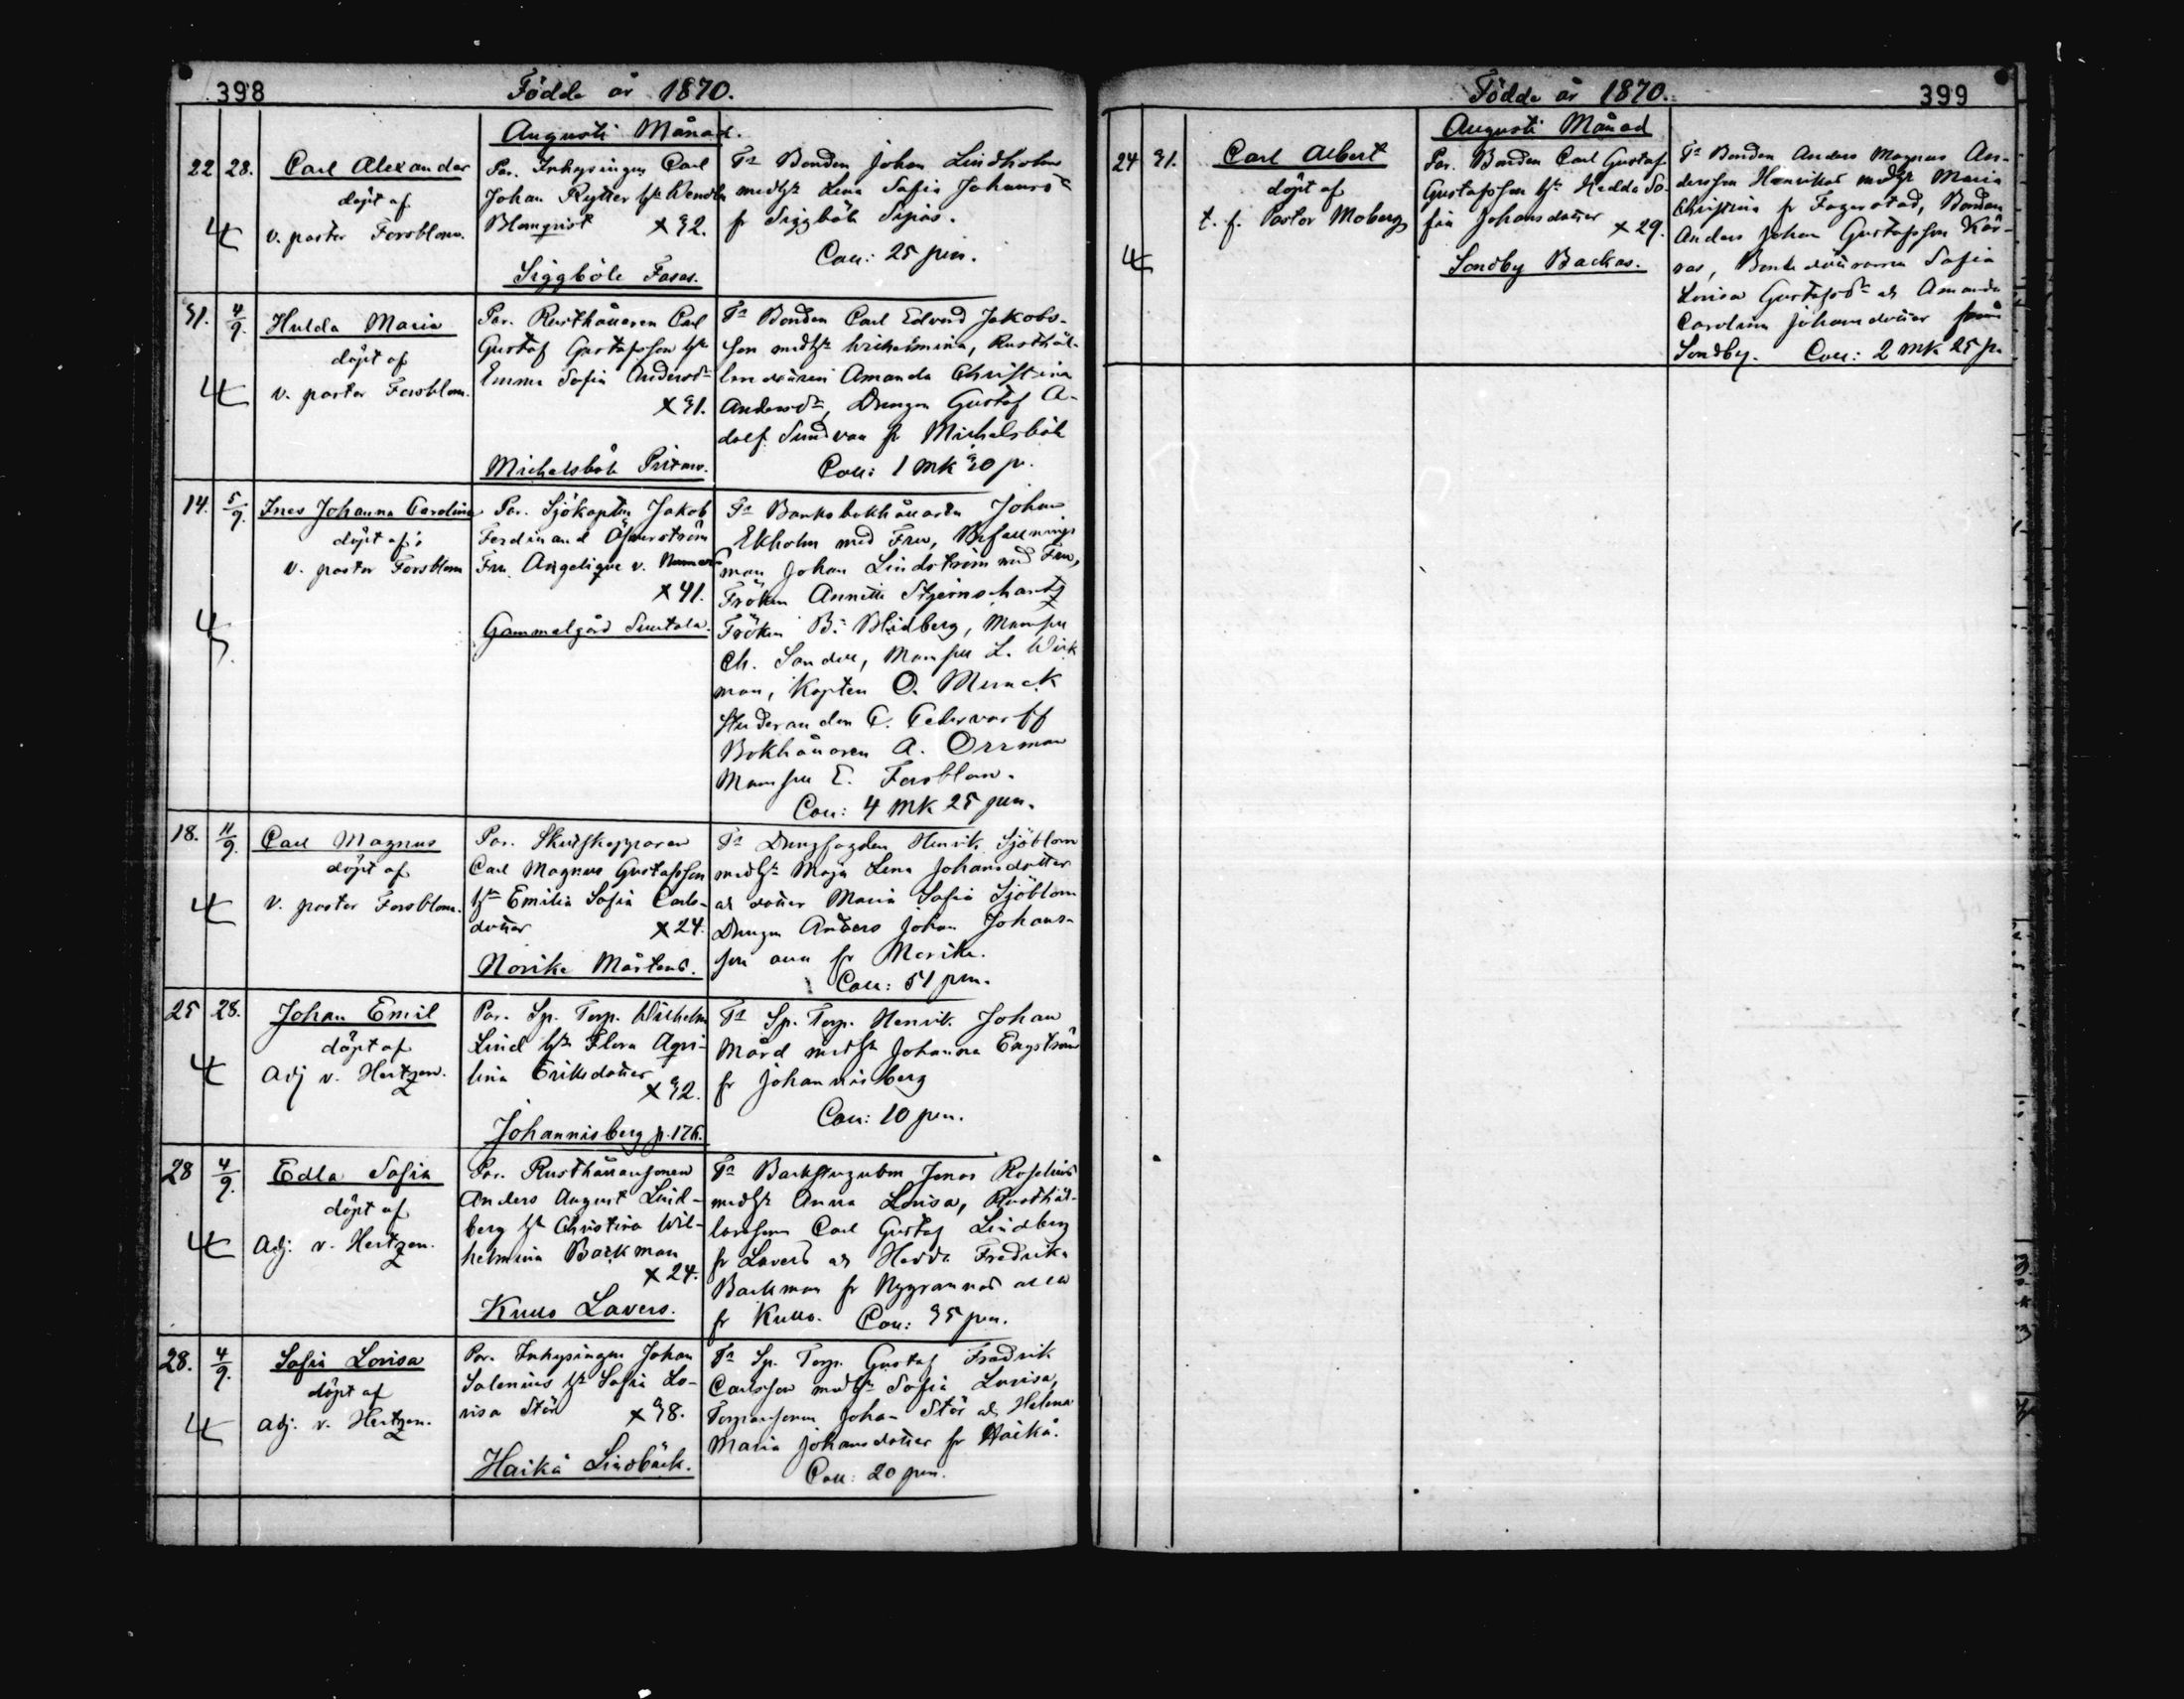 398
Födde år 1870.
Augusti Månad.
22 28. Carl Alexander
döpt af
v. pastor Forsblom.
För. Inhysingen Carl
Johan Rytter hu Wendla
Blomqvist x 32.
Siggböle Fasas.
Fa Bonden Johan Lindholm
med hu Lena Sofia Johansdr
fr Siggböle Sipas.
Coll: 25 pen.
31. 4/9. Hulda Maria
döpt af
v. pastor Forsblom.
För. Rusthållaren Carl
Gustaf Gustafsson hu
Emma Sofia Andersdr
x 31.
Michelsböle
Fa Bonden Carl Edvard Jakobs-
son med hu Wilhelmina, Rusthål-
lardottren Amanda Christina
Andersdr, Drengen Gustaf A-
dolf Sundvall fr Michelsböle
Coll: 1 mk 30 p.
14. 5/9. Ines Johanna Carolina
döpt af
v. pastor Forsblom
För. Sjökapten Jakob
Ferdinand Öfverström
Fru Angelique v.
x 41.
Gammelgård
Fa Banksbokhållaren Johan
Ekholm med Fru, Befallnings
man Johan Lindström med Fru,
Fröken Annette Stjernschantz
Fröken B. Blidberg, Mamsell
Ch. Sandell, Mamsell L. Wik
man, Kapten O. Munck
Studeranden C.
Bokhållaren A. Orrman
Mamsell E. Forsblom.
Coll: 4 mk 25 pen.
18. 11/9. Carl Magnus
döpt af
v. pastor Forsblom.
För. Skutskepparen
Carl Magnus Gustafsson
hu Emilia Sofia Carls-
dotter x 24.
Norike Mårtens.
Fa Drengfogden Henrik Sjöblom
med hu Maja Lena Johansdotter
o dotter Maria Sofia Sjöblom
Drengen Anders Johan Johans-
son alla fr Norike.
Coll: 51 pen.
25 28. Johan Emil
döpt af
Adj v. Hertzen.
För. Sp. Torp. Wilhelm
Lind hu Flora
lina Eriksdotter
x 32.
Johannisberg p. 176.
Fa Sp. Torp. Henrik Johan
Mård med hu Johanna Engström
fr Johannisberg
Coll: 10 pen.
28 4/9. Edla Sofia
döpt af
Adj. v. Hertzen.
För. Rusthållarsonen
Anders August Lind-
berg hu Christina Wil-
helmina Backman
x 24.
Kullo Lavers.
Fa Backstugubon Jonas Roselius
med hu Anna Lovisa, Rusthål-
larsonen Carl Gustaf Lindberg
fr Lavers o Hedda Fredrika
Backman fr Nygrannas alla
fr Kullo. Coll: 35 pen.
28. 4/9. Sofia Lovisa
döpt af
Adj. v. Hertzen.
För. Inhysingen Johan
Salenius hu Sofia Lo-
visa Stör x 38.
Haikå Lindbäck.
Fa Sp. Torp. Gustaf Fredrik
Carlsson med hu Sofia Lovisa,
Torparsonen Johan Stör o Helena
Maria Johansdotter fr Haikå.
Coll: 20 pen.
Födde år 1870.
399
Augusti Månad
24 31. Carl Albert
döpt af
t. f. Pastor Moberg
För. Bonden Carl Gustaf
Gustafsson hu Hedda So-
fia Johansdotter
x 29.
Sondby Backas.
Fa Bonden Anders Magnus An-
dersson Henrikas med hu Maria
Christina fr Fagerstad, Bonden
Anders Johan Gustafsson Kär-
ras, Bondedöttrarna Sofia
Lovisa Gustafsdr o Amanda
Carolina Johansdotter från
Sondby. Coll: 2 mk 25 p.